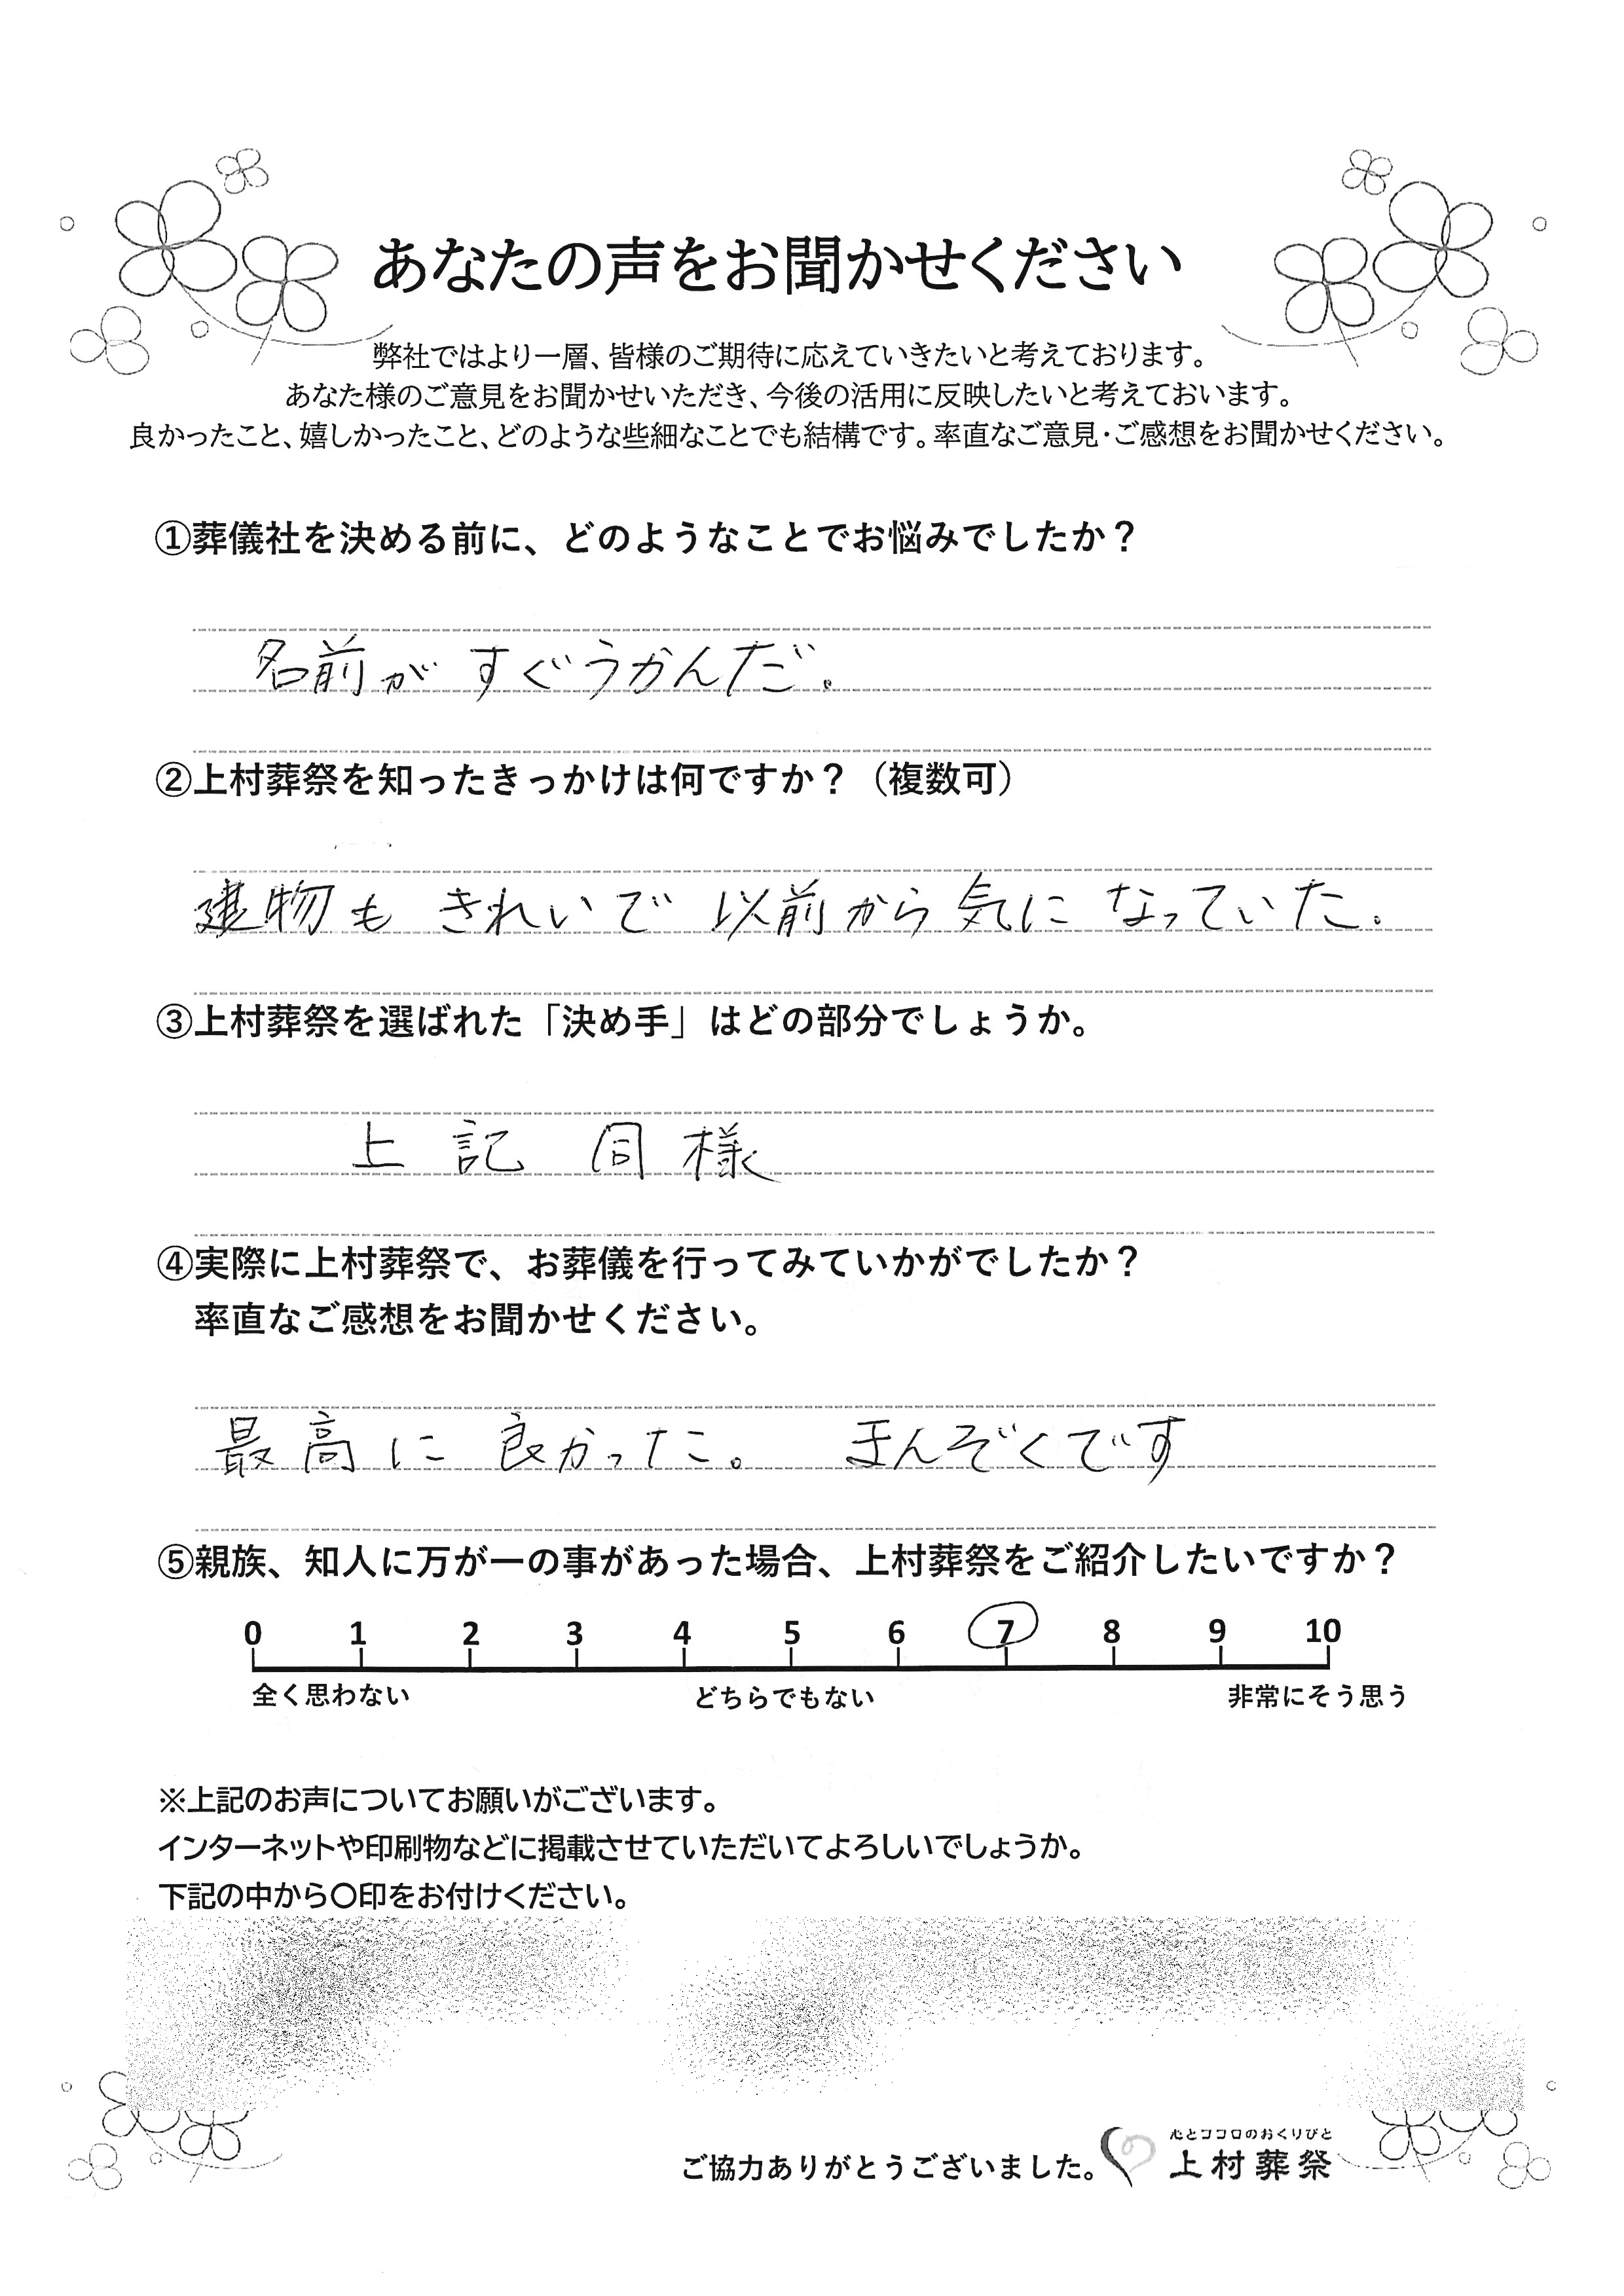 あなたの声をお聞かせください
弊社ではより一層、皆様のご期待に応えていきたいと考えております。
あなた様のご意見をお聞かせいただき、今後の活用に反映したいと考えておいます。
良かったこと、嬉しかったこと、どのような些細なことでも結構です。率直なご意見・ご感想をお聞かせください。
①葬儀社を決める前に、どのようなことでお悩みでしたか？
名前がすぐうかんだ。
②上村葬祭を知ったきっかけは何ですか？（複数可）
建物もきれいで以前から気になっていた。
③上村葬祭を選ばれた「決め手」はどの部分でしょうか。
上記同様
④実際に上村葬祭で、お葬儀を行ってみていかがでしたか？
率直なご感想をお聞かせください。
最高に良かった。 まんぞくです
⑤親族、知人に万が一の事があった場合、上村葬祭をご紹介したいですか？
0 1 2 3 4 5 6 7 8 9 10
全く思わない どちらでもない 非常にそう思う
※上記のお声についてお願いがございます。
インターネットや印刷物などに掲載させていただいてよろしいでしょうか。
下記の中から〇印をお付けください。
心とココロのおくりびと
ご協力ありがとうございました。 上村葬祭